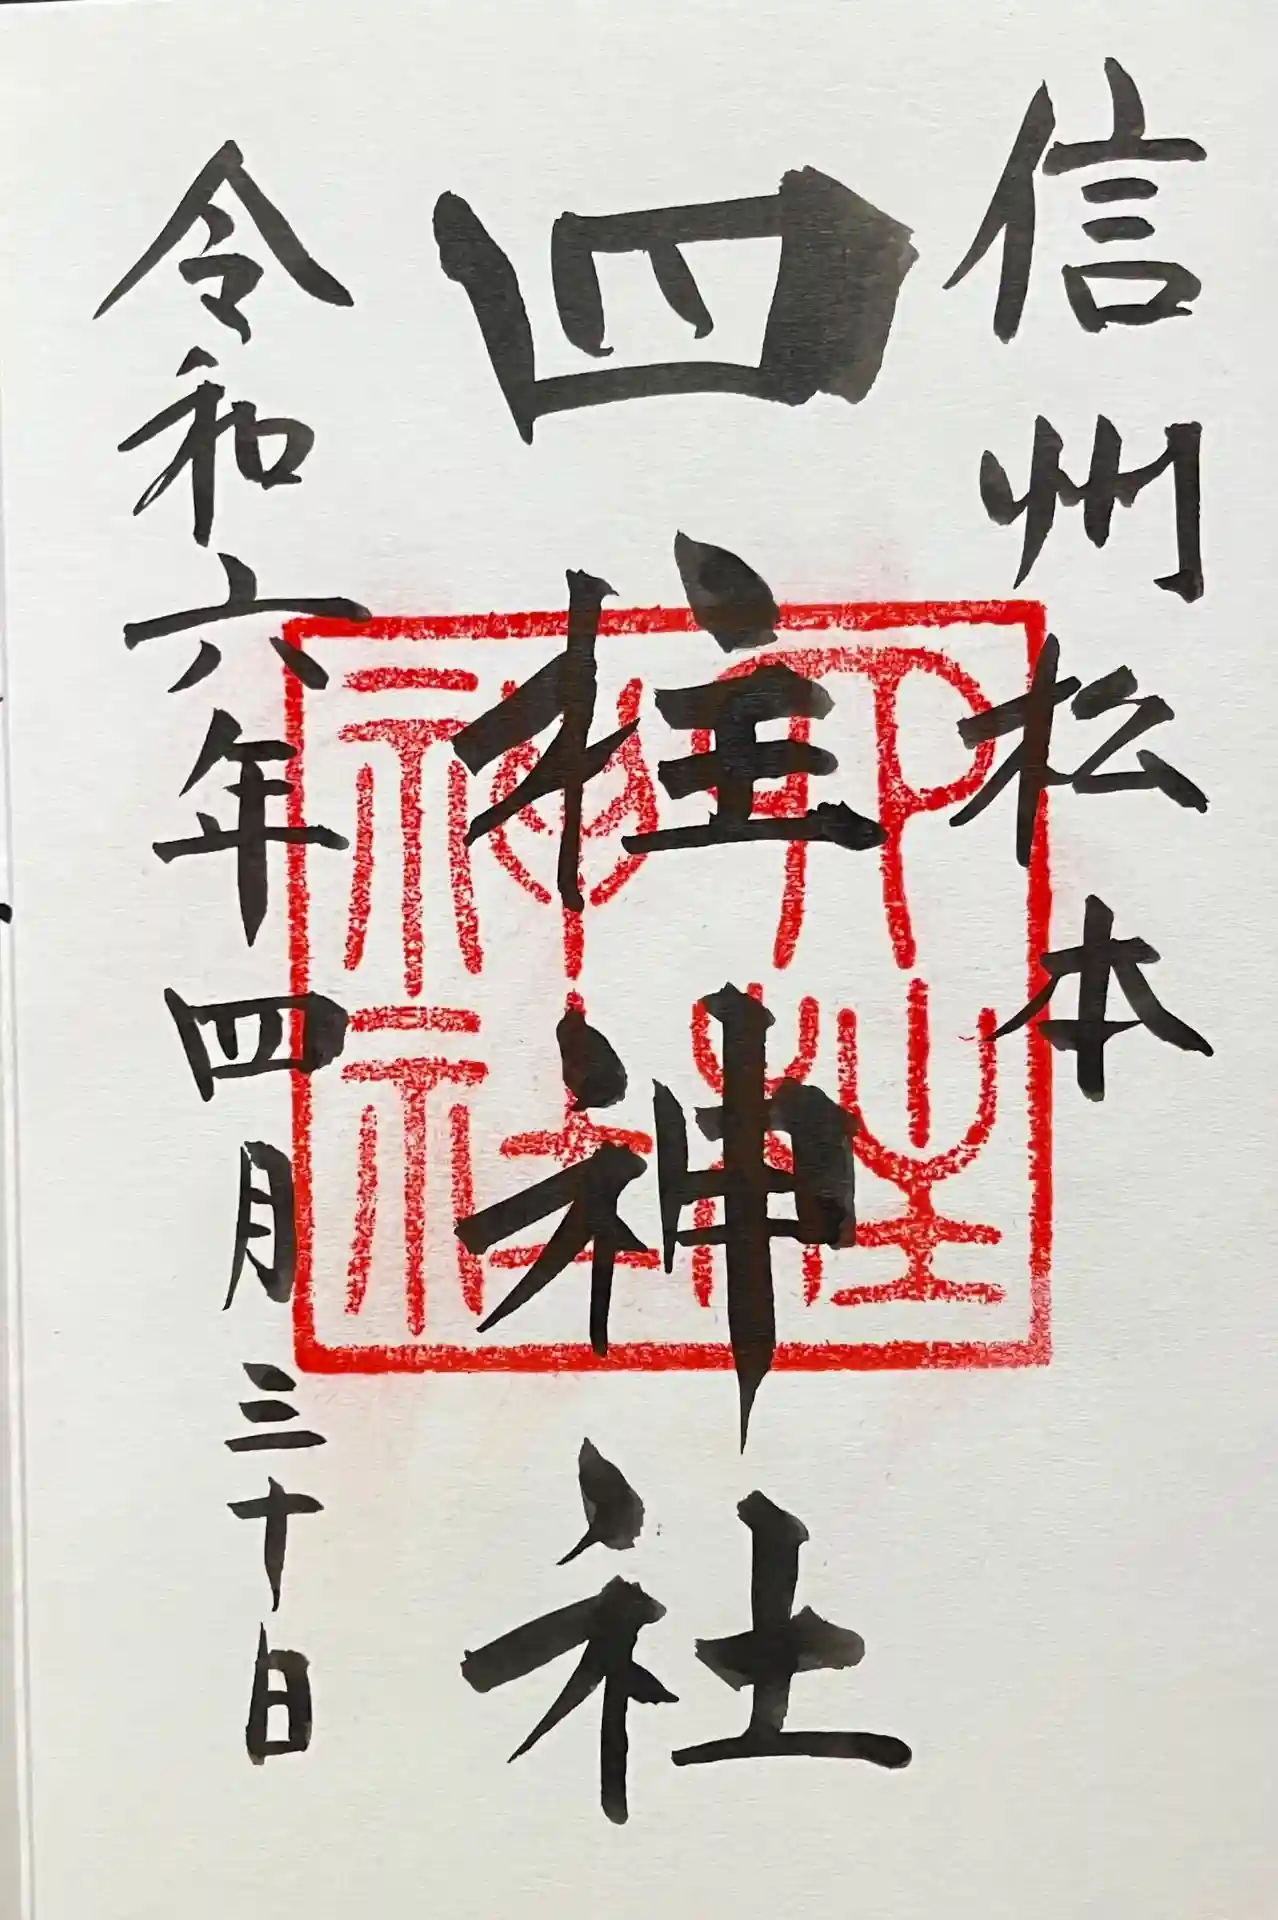 信州松本
四柱神社
令和六年四月三十日
四柱神社